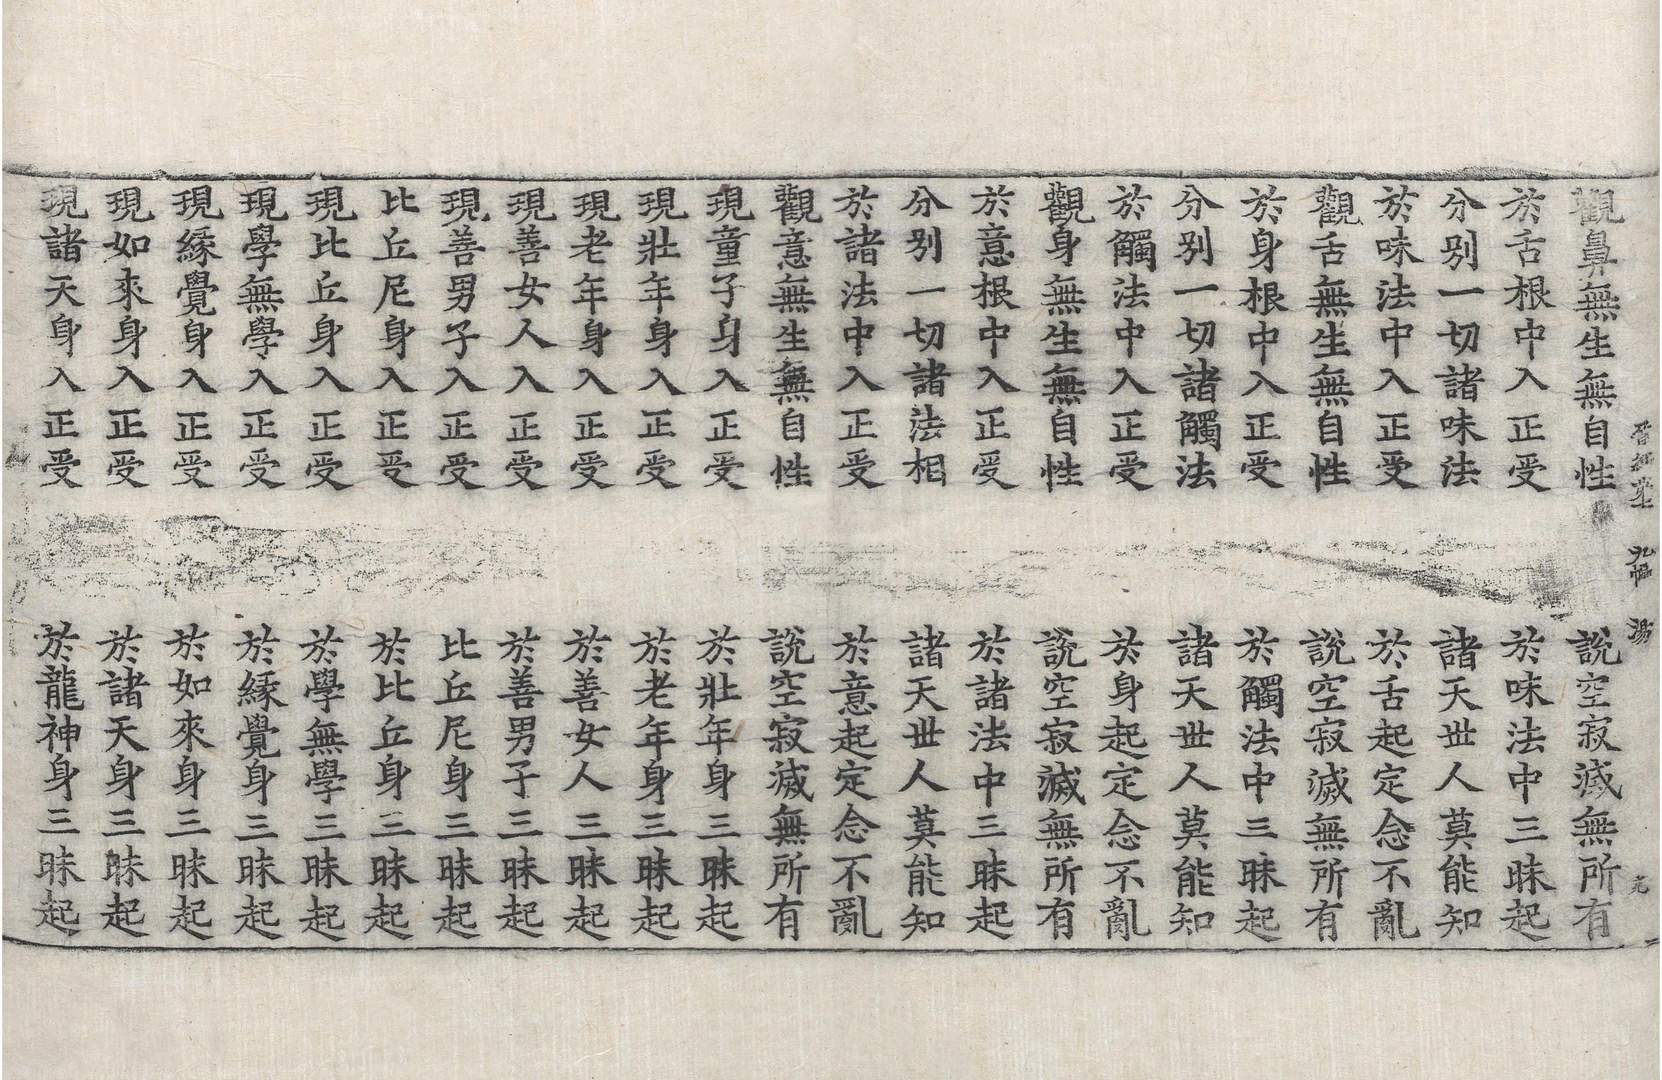 九幅 湯
觀鼻無生無自性 說空寂滅無所有
於舌根中入正受 於味法中三昧起
分別一切諸味法 諸天世人莫能知
於味法中入正受 於舌起定念不亂
觀舌無生無自性 說空寂滅無所有
於身根中入正受 於觸法中三昧起
分別一切諸觸法 諸天世人莫能知
於觸法中入正受 於身起定念不亂
觀身無生無自性 說空寂滅無所有
於意根中入正受 於諸法中三昧起
分別一切諸法相 諸天世人莫能知
於諸法中入正受 於意起定念不亂
觀意無生無自性 說空寂滅無所有
現童子身入正受 於壯年身三昧起
現壯年身入正受 於老年身三昧起
現老年身入正受 於善女人三昧起
現善女人入正受 於善男子三昧起
現善男子入正受 比丘尼身三昧起
比丘尼身入正受 於比丘身三昧起
現比丘身入正受 於學無學三昧起
現學無學入正受 於緣覺身三昧起
現緣覺身入正受 於如來身三昧起
現如來身入正受 於諸天身三昧起
現諸天身入正受 於龍神身三昧起